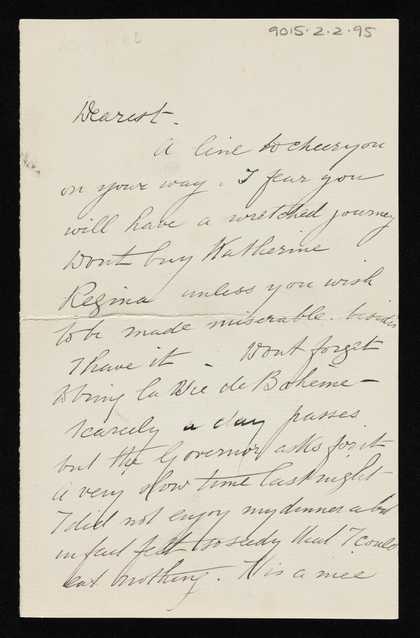 9015.2.2.95
Dearest.
A line to cheer you
on your way. I fear you
will have a wretched journey
Dont buy Katherine
Regina unless you wish
to be made miserable. besides
I have it - Dont forget
to bring la Vie de Bohême -
scarcely a day passes
but the Governor asks for it
a very slow time last night
I did not enjoy my dinner a bit
in fact felt so seedy that I could
eat nothing. It is a nice